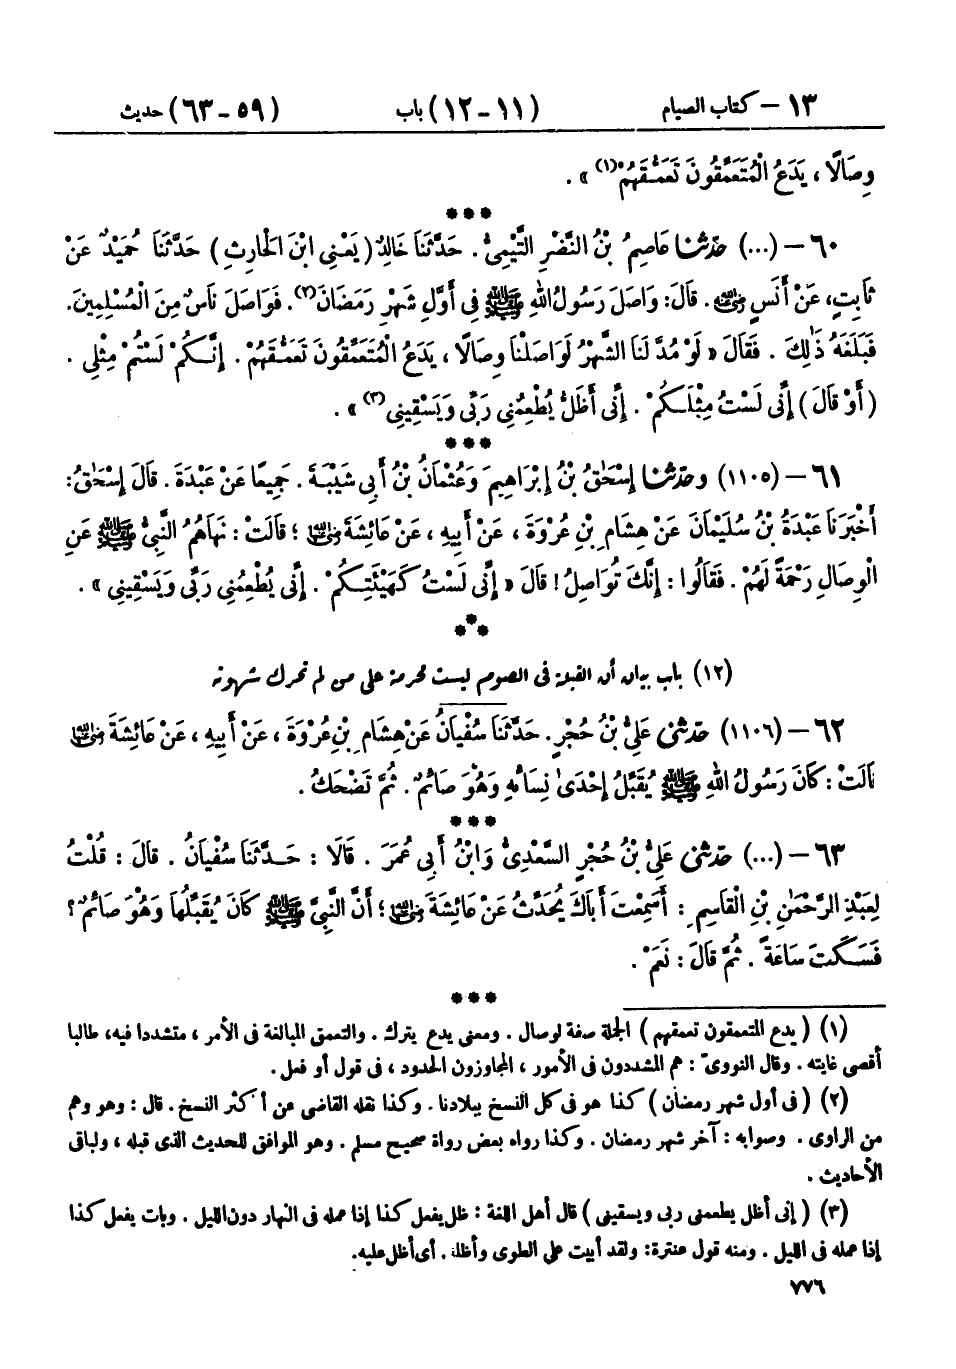 ١٣ – كتاب الصيام (١١ - ١٢) باب (٥٩ - ٦٣) حديث
وِصَالًا ، يَدَعُ الْمُتَعَمِّقُونَ تَعَمُّقَهُمْ (١) » .
***
٦٠ – (...) حَدَّثَنَا عَاصِمُ بْنُ النَّضْرِ التَّيْمِيُّ . حَدَّثَنَا خَالِدٌ (يَعْنِي ابْنَ الْحَارِثِ) حَدَّثَنَا حُمَيْدٌ عَنْ
ثَابِتٍ، عَنْ أَنَسٍ رضي الله عنه . قَالَ: وَاصَلَ رَسُولُ اللهِ ﷺ فِي أَوَّلِ شَهْرِ رَمَضَانَ (٢) . فَوَاصَلَ نَاسٌ مِنَ الْمُسْلِمِينَ.
فَبَلَغَهُ ذَٰلِكَ . فَقَالَ « لَوْ مُدَّ لَنَا الشَّهْرُ لَوَاصَلْنَا وِصَالًا ، يَدَعُ الْمُتَعَمِّقُونَ تَعَمُّقَهُمْ . إِنَّكُمْ لَسْتُمْ مِثْلِي .
( أَوْ قَالَ ) إِنِّي لَسْتُ مِثْلَكُمْ . إِنِّي أَظَلُّ يُطْعِمُنِي رَبِّي وَيَسْقِينِي (٣) » .
***
٦١ – (١١٠٥) وحَدَّثَنَا إِسْحَٰقُ بْنُ إِبْرَاهِيمَ وَعُثْمَانُ بْنُ أَبِي شَيْبَةَ . جَمِيعًا عَنْ عَبْدَةَ . قَالَ إِسْحَٰقُ:
أَخْبَرَنَا عَبْدَةُ بْنُ سُلَيْمَانَ عَنْ هِشَامِ بْنِ عُرْوَةَ ، عَنْ أَبِيهِ ، عَنْ عَائِشَةَ رضي الله عنها ؛ قَالَتْ : نَهَاهُمُ النَّبِيُّ ﷺ عَنِ
الْوِصَالِ رَحْمَةً لَهُمْ . فَقَالُوا : إِنَّكَ تُوَاصِلُ ! قَالَ « إِنِّي لَسْتُ كَهَيْئَتِكُمْ . إِنِّي يُطْعِمُنِي رَبِّي وَيَسْقِينِي » .
***
(١٢) باب بيان أن القبلة فى الصوم ليست محرمة على من لم تحرك شهوته
٦٢ – (١١٠٦) حَدَّثَنِي عَلِيُّ بْنُ حُجْرٍ. حَدَّثَنَا سُفْيَانُ عَنْ هِشَامِ بْنِ عُرْوَةَ ، عَنْ أَبِيهِ ، عَنْ عَائِشَةَ رضي الله عنها
قَالَتْ : كَانَ رَسُولُ اللهِ ﷺ يُقَبِّلُ إِحْدَىٰ نِسَائِهِ وَهُوَ صَائِمٌ . ثُمَّ تَضْحَكُ .
***
٦٣ – (...) حَدَّثَنِي عَلِيُّ بْنُ حُجْرٍ السَّعْدِيُّ وَابْنُ أَبِي عُمَرَ . قَالَا : حَدَّثَنَا سُفْيَانُ . قَالَ : قُلْتُ
لِعَبْدِ الرَّحْمَٰنِ بْنِ الْقَاسِمِ : أَسَمِعْتَ أَبَاكَ يُحَدِّثُ عَنْ عَائِشَةَ رضي الله عنها ؛ أَنَّ النَّبِيَّ ﷺ كَانَ يُقَبِّلُهَا وَهُوَ صَائِمٌ ؟
فَسَكَتَ سَاعَةً . ثُمَّ قَالَ : نَعَمْ .
***
(١) ( يدع المتعمقون تعمقهم ) الجملة صفة لوصال . ومعنى يدع يترك . والتعمق المبالغة فى الأمر ، متشددا فيه، طالبا
أقصى غايته . وقال النووىّ : هم المشددون فى الأمور ، المجاوزون الحدود ، فى قول أو فعل .
(٢) ( فى أول شهر رمضان ) كذا هو فى كل النسخ ببلادنا . وكذا نقله القاضى عن أكثر النسخ . قال : وهو وهم
من الراوى . وصوابه : آخر شهر رمضان . وكذا رواه بعض رواة صحيح مسلم . وهو الموافق للحديث الذى قبله ، ولباقى
الأحاديث .
(٣) ( إنى أظل يطعمنى ربى ويسقينى ) قال أهل اللغة : ظل يفعل كذا إذا عمله فى النهار دون الليل . وبات يفعل كذا
إذا عمله فى الليل . ومنه قول عنترة: ولقد أبيت على الطوى وأظله . أى أظل عليه.
٧٧٦